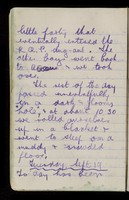 little party that
eventually entered the
R.A.P. dug-out. The
other boys went back
to & we took
over.
The rest of the day
passed uneventfully
in a dark & gloomy
hole, & at last 10.30
we rolled ourselves
up in a blanket &
went to sleep on a
muddy & crowded
floor.
Tuesday Sept. 19
To day has been